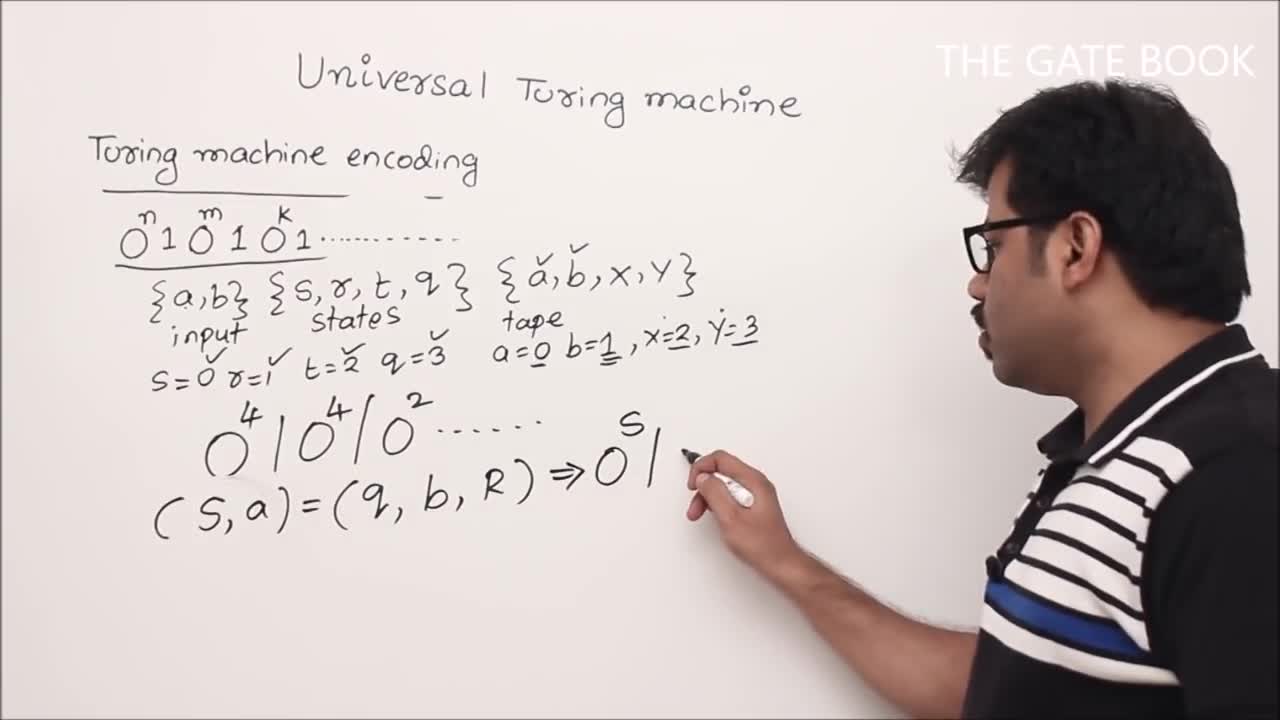 THE GATE BOOK
Universal Turing machine
Turing machine encoding
0ⁿ 1 0ᵐ 1 0ᵏ 1 ..............
{a,b} {s, r, t, q} {a, b, x, y}
input states tape
s=0 r=1 t=2 q=3 a=0 b=1, x=2, y=3
0⁴ | 0⁴ | 0² ......
(s, a) = (q, b, R) ⇒ 0ˢ |